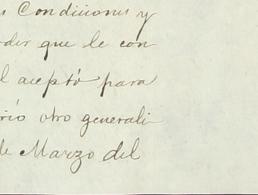 s Condiciones y
der que le con
l aceptó para
rió otro generali
de Marzo del